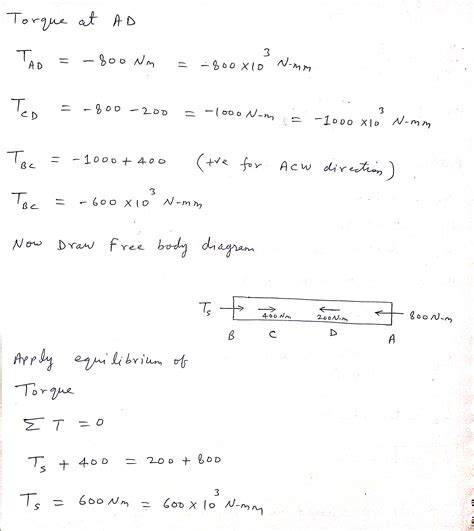 Torque at AD
T_AD = -800 Nm = -800 × 10³ N-mm
T_CD = -800 - 200 = -1000 N-m = -1000 × 10³ N-mm
T_BC = -1000 + 400 (+ve for ACW direction)
T_BC = -600 × 10³ N-mm
Now Draw free body diagram
T_s → 400 Nm 200 N.m ← 800 N-m
B C D A
Apply equilibrium of
Torque
Σ T = 0
T_s + 400 = 200 + 800
T_s = 600 Nm = 600 × 10³ N-mm